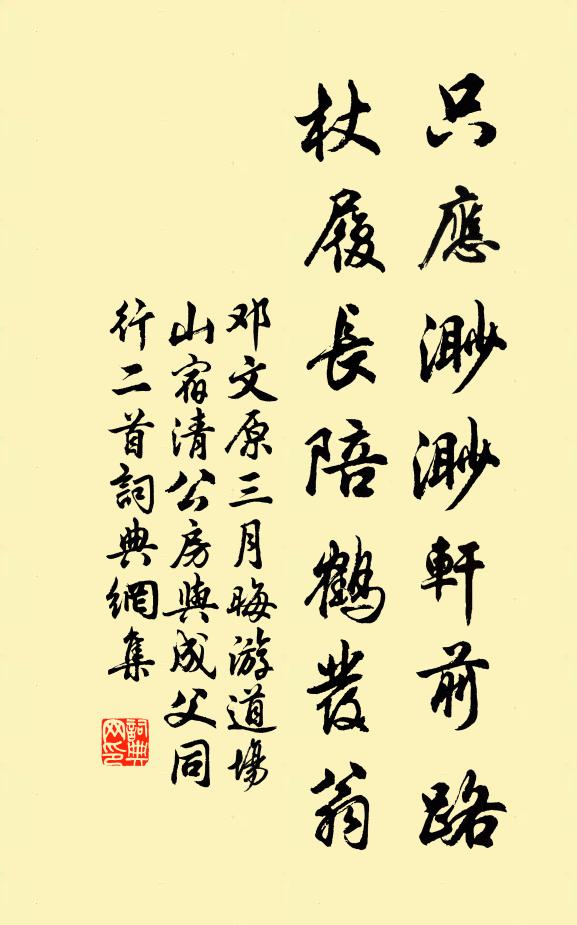 只應渺渺軒前路
杖履長陪鶴發翁
邓文原三月晦游道場
山宿清公房與成父同
行二首詞典網集
詞典
网印